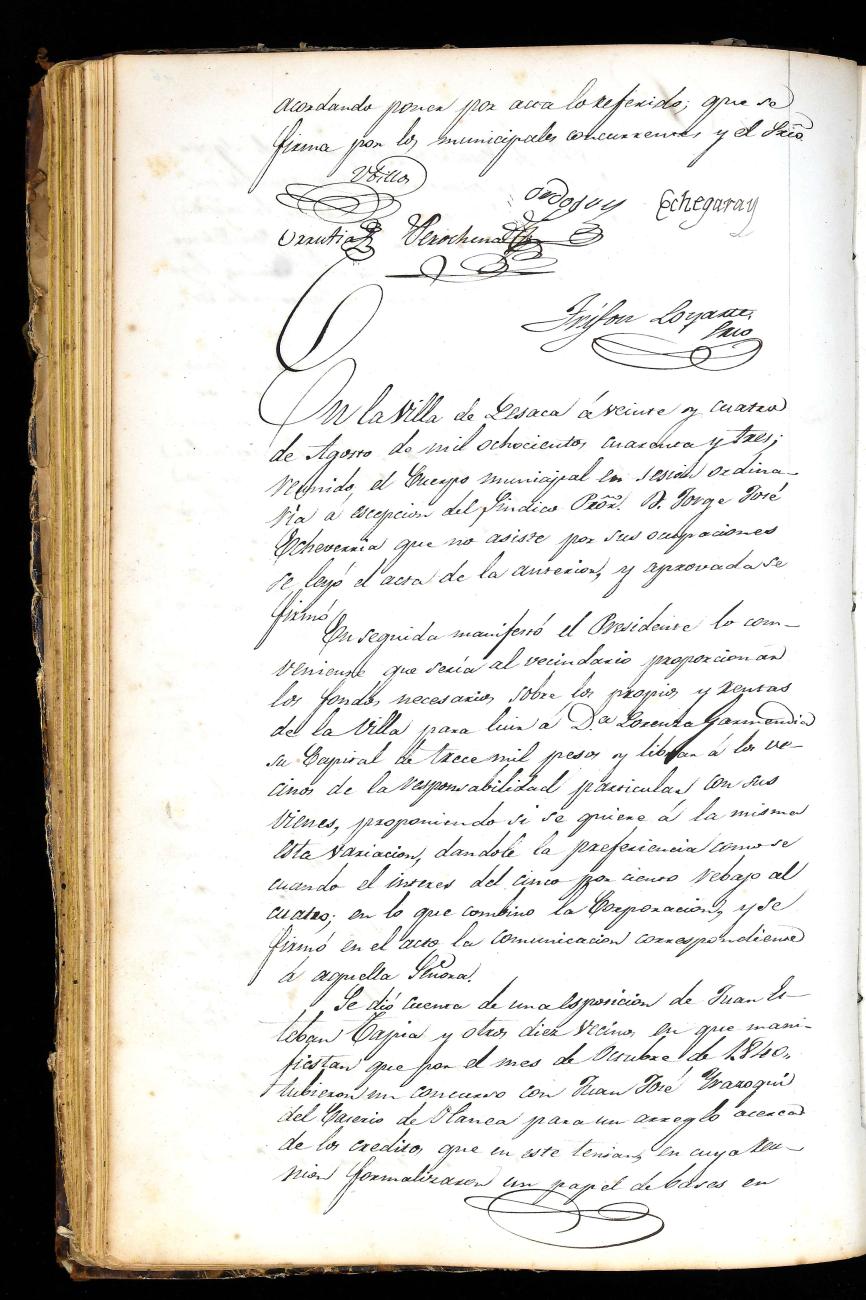 acordando poner por acta lo referido; que se
firma por los municipales concurrentes y el Srio
Utillo
Ordoquy Echegaray
Urrutia Perochena
Trifon Loyarte,
Srio
En la Villa de Lesaca á veinte y cuatro
de Agosto de mil ochocientos cuarenta y tres;
reunido el Cuerpo municipal en sesion ordina-
ria á escepcion del Sindico Prõr. D. Jorge José
Echeverria que no asiste por sus ocupaciones
se leyó el acta de la anterior, y aprovada se
firmó.
En seguida manifestó el Presidente lo com-
veniente que sería al vecindario proporcionar
los fondos necesarios sobre los propios y rentas
de la Villa para luir a D.a Lorenza Garmendia
su Capital de trece mil pesos y librar á los ve-
cinos de la responsabilidad particular con sus
vienes, proponiendo si se quiere á la misma
esta variacion, dandole la preferiencia como se
cuando el interes del cinco por ciento rebajo al
cuatro; en lo que combino la Corporacion, y se
firmó en el acto la comunicacion correspondiente
á aquella Señora.
Se dió cuenta de una esposicion de Juan Es-
teban Tapia y otros diez vecinos en que mani-
fiestan que por el mes de Octubre de 1840,
tubieron un concurso con Juan José Yraroqui
del Caserio de Olanea para un arreglo acerca
de los creditos que en este tenian, en cuya reu-
nion formalizaron un papel de bases en